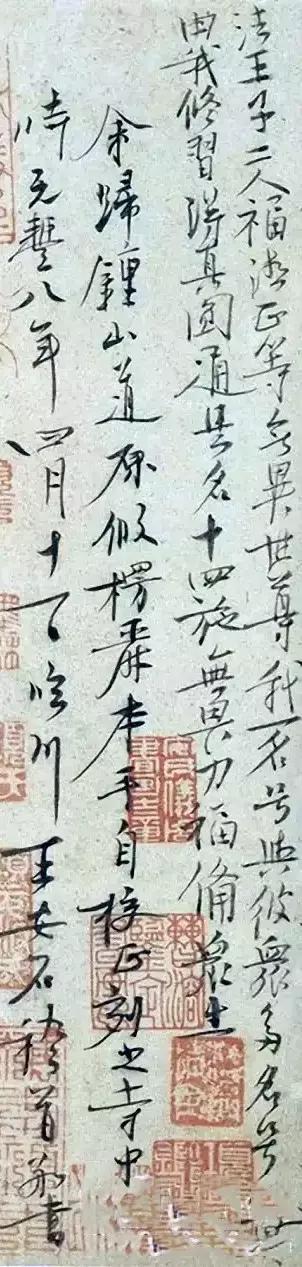 法王子二人福德正等无異世尊我一名号與彼衆多名号
由我修習得真圓通是名十四施無畏力福備衆生
余歸鍾山道原假楞嚴本手自校正刻之寺中
時元豐八年四月十一日臨川王安石稽首敬書